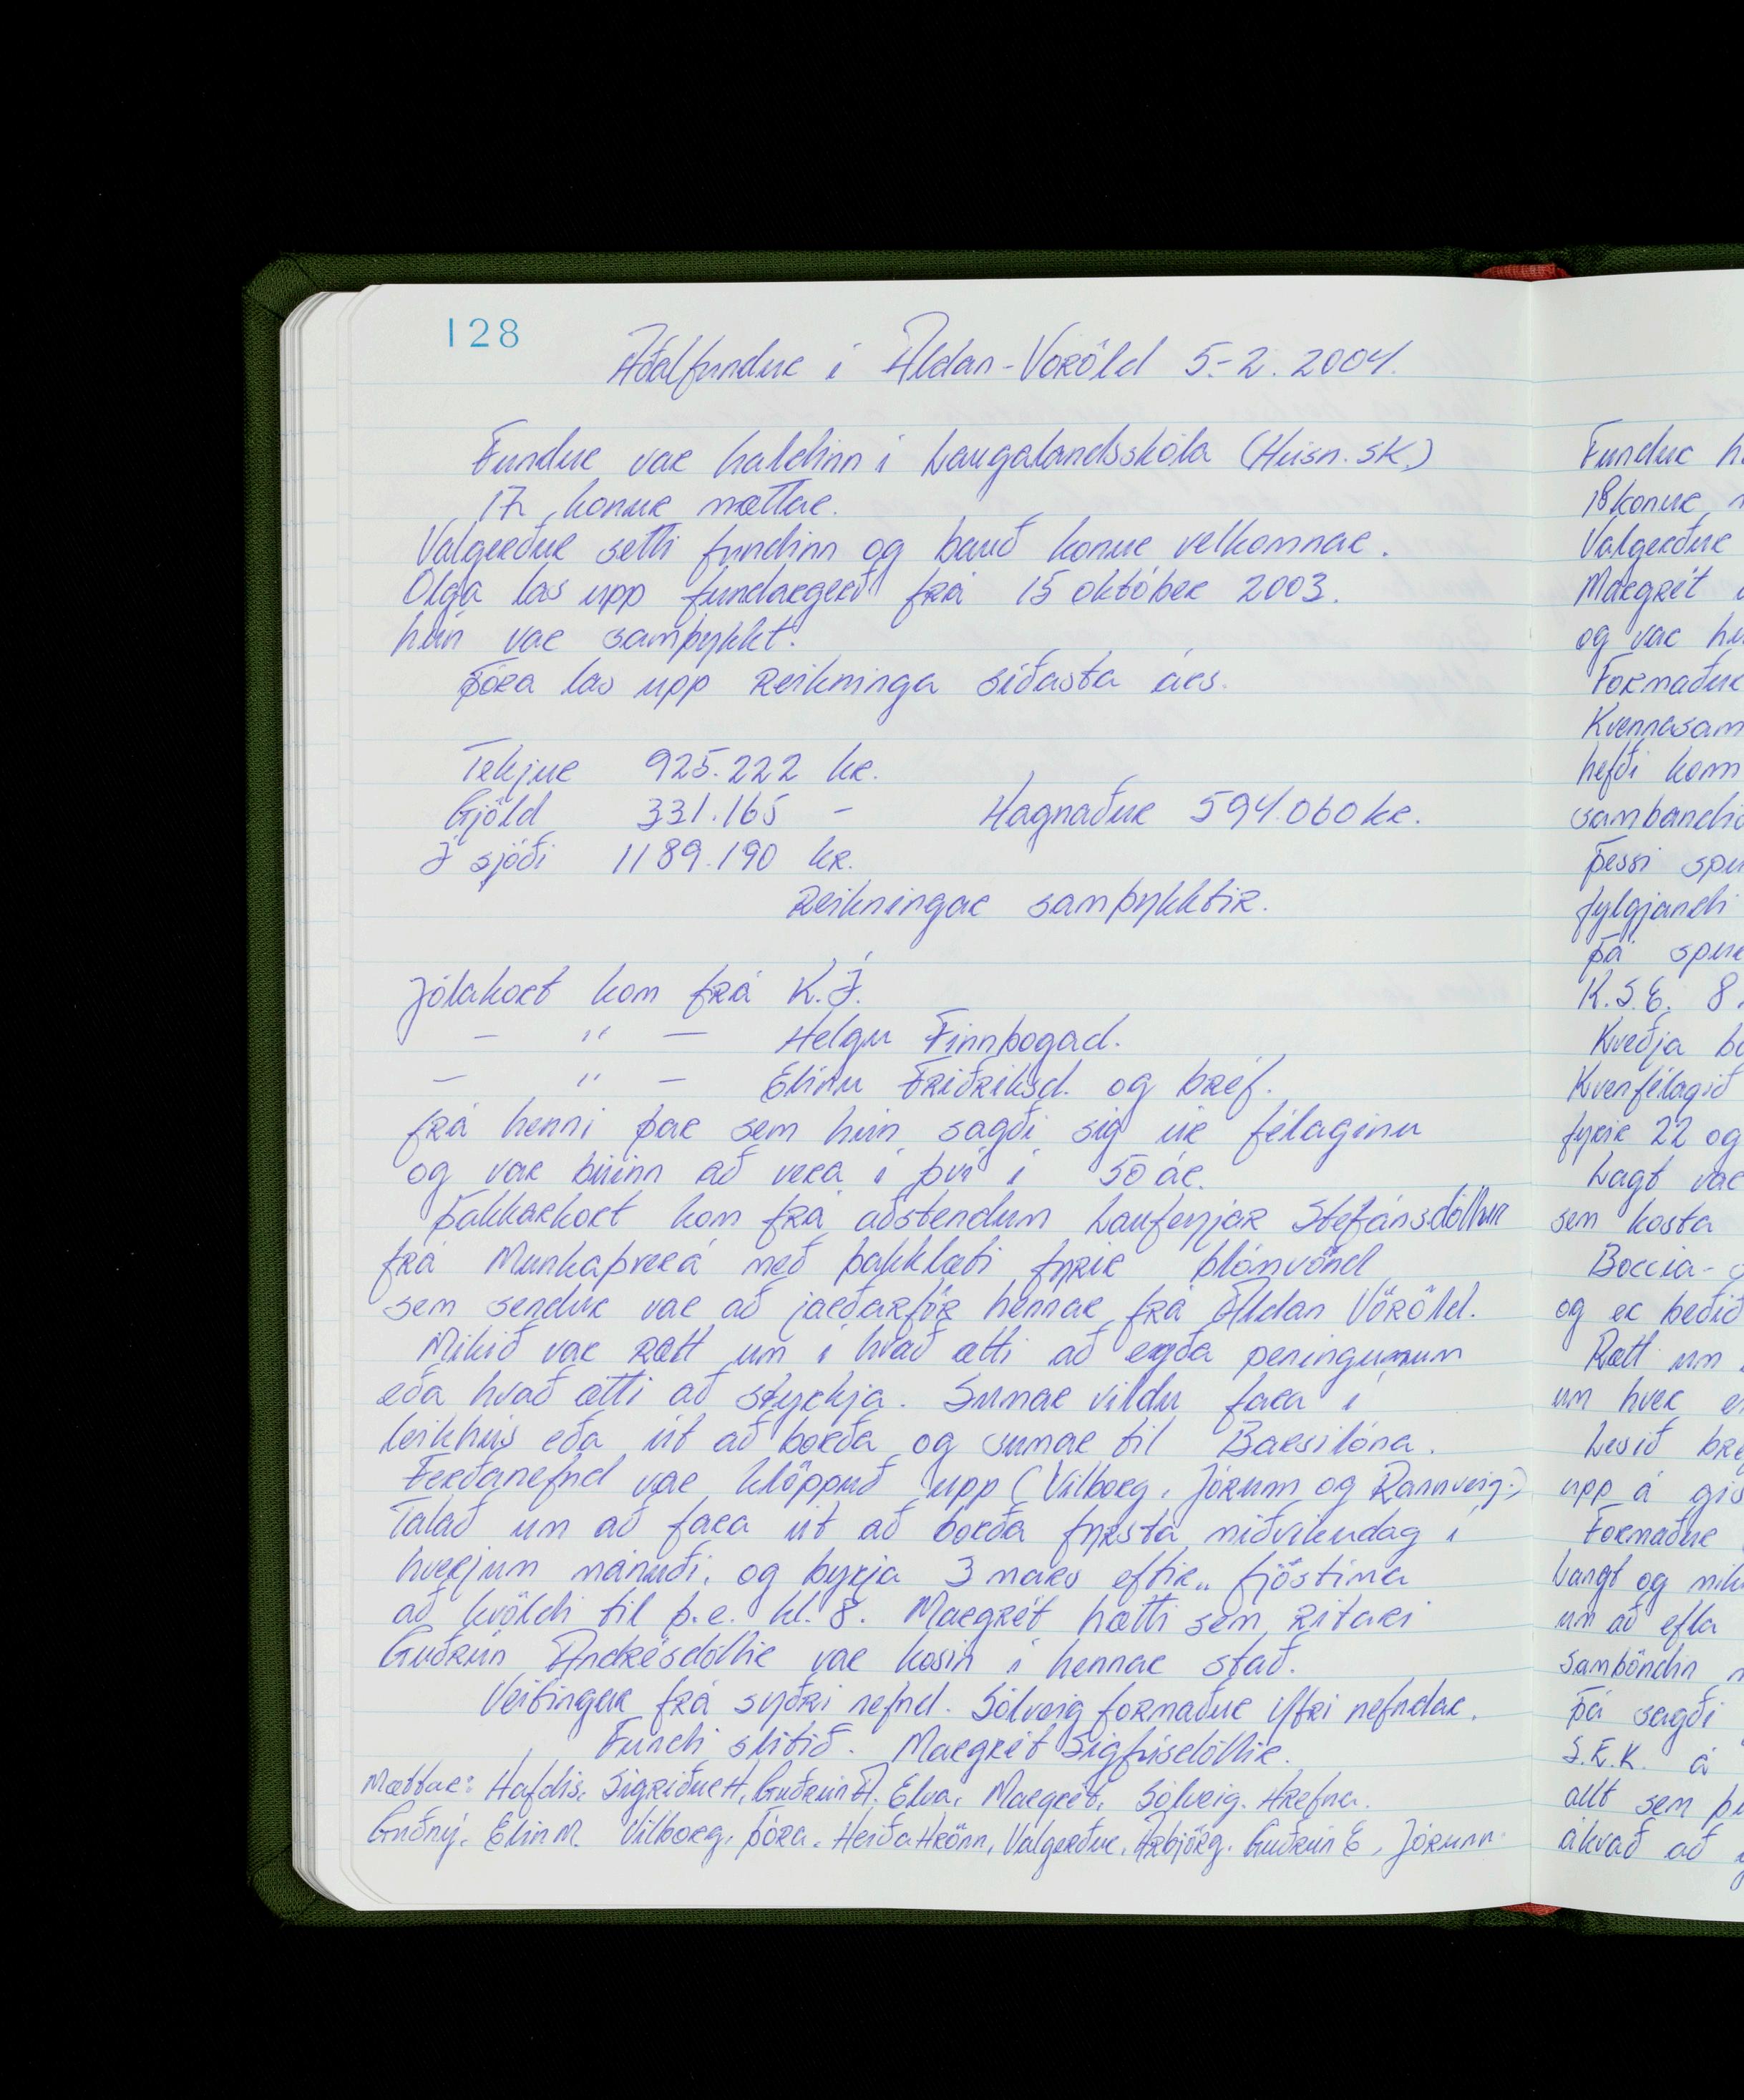 128
Aðalfundur í Aldan-Voröld 5.-2. 2004.
Fundur var haldinn í Laugalandsskóla (Húsn. sk.)
17 konur mættar.
Valgerður setti fundinn og bauð konur velkomnar.
Olga las upp fundargerð frá 15 október 2003.
hún var samþykkt.
Þóra las upp Reikninga síðasta árs.
Tekjur 925.222 kr.
Gjöld 331.165 - Hagnaður 594.060 kr.
Í sjóði 1189.190 kr.
Reikningar samþykktir.
Jólakort kom frá K.Í.
- " - Helgu Finnbogad.
- " - Elínu Friðriksd. og bréf.
frá henni þar sem hún sagði sig úr félaginu
og var búinn að vera í því í 50 ár.
Þakkarkort kom frá aðstendum Laufeyjar Stefánsdóttur
frá Munkaþverá með þakklæti fyrir blómvönd
sem sendur var að jarðarför hennar frá Aldan Vöröld.
Mikið var rætt um í hvað ætti að eyða peningunum
eða hvað ætti að styrkja. Sumar vildu fara í
leikhús eða út að borða og sumar til Barsilóna.
Ferðanefnd var klöppuð upp (Vilborg, Jórunn og Rannveig.)
Talað um að fara út að borða fyrsta miðvikudag í
hverjum mánuði, og byrja 3 mars eftir „ fjóstíma
að kvöldi til þ.e. kl. 8. Margrét hætti sem ritari
Guðrún Andrésdóttir var kosin í hennar stað.
Veitingar frá syðri nefnd. Sólveig formaður ytri nefndar.
Fundi slitið. Margrét Sigfúsdóttir.
Mættar: Hafdís, Sigríður H, Guðrún A. Elva, Margrét, Sólveig. Hrefna.
Guðný. Elín M. Vilborg, Þóra. Heiða Hrönn, Valgerður, Arbjörg. Guðrún E, Jórunn
Fundur
18 konur
Valgerður
Margrét
og var
Formaður
Kvennasam
hefði kom
sambandi
Þessi spu
fylgjandi
Þá spur
K.S.E. 8.
Kveðja
Kvenfélagið
fyrir 22 og
Lagt var
sem kosta
Boccia-
og er beðið
Rætt um
um hver
Lesið
upp á
Formaður
Langt og
um að efla
samböndin
Þá sagði
á
allt sem
ákvað að